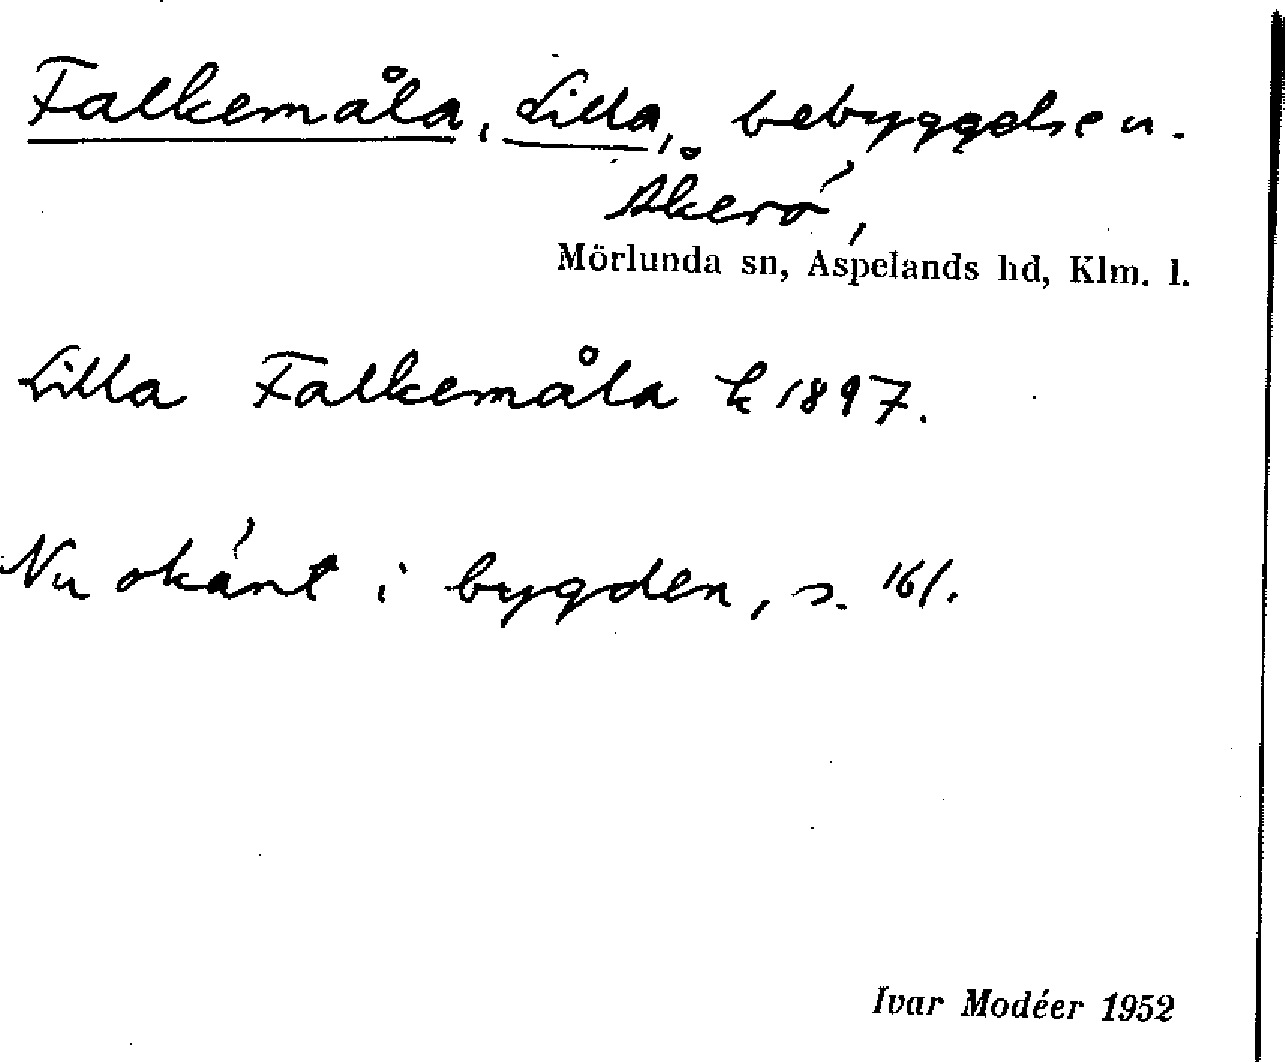 Falkemåla, Lilla, bebyggelse u.
Åkerö,
Mörlunda sn, Aspelands hd, Klm. l.
Lilla Falkemåla k 1897.
Nu okänt i bygden, s. 161.
Ivar Modéer 1952